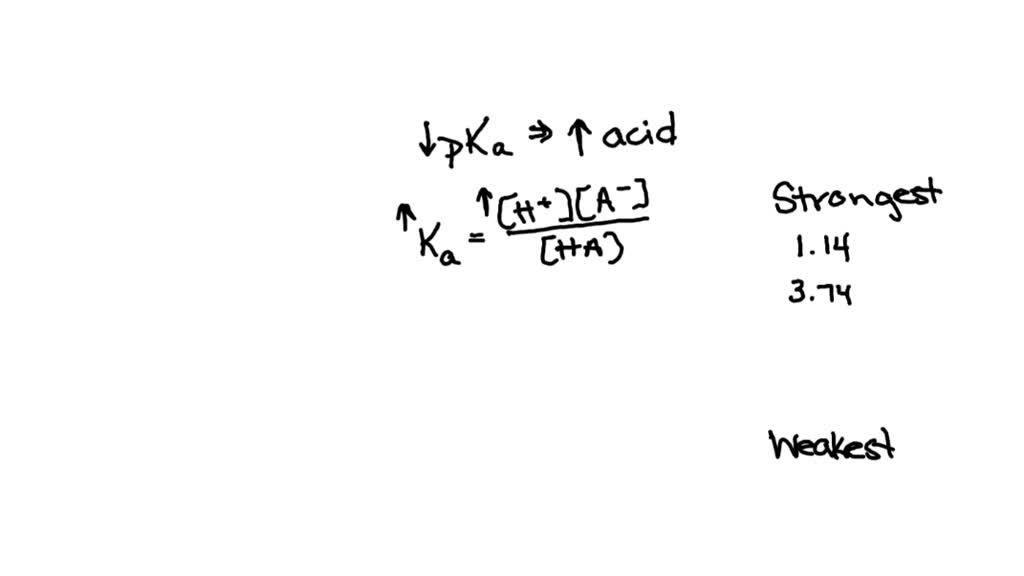 ↓pKa ⇒ ↑ acid
↑Ka = ↑[H+][A-]/[HA]
Strongest
1.14
3.74
Weakest